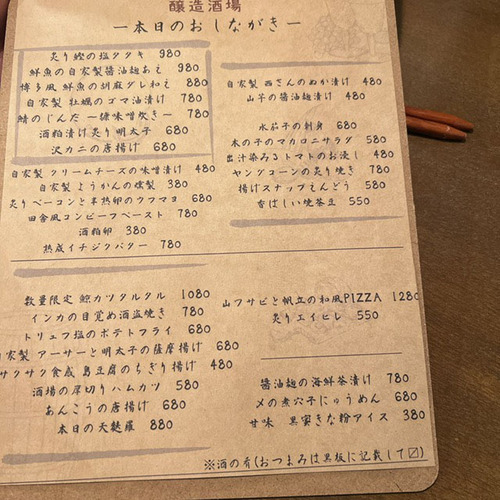 醸造酒場
ー本日のおしながきー
炙り鰹の塩タタキ 980
鮮魚の自家製醤油麹あえ 980
博多風 鮮魚の胡麻ダレねえ 880
自家製 牡蠣のゴマ油漬け 780
鯖のじんだ 〜糠味噌炊き〜 780
酒粕漬け炙り明太子 680
沢カニの唐揚げ 680
自家製 クリームチーズの味噌漬け 480
自家製 ようかんの燻製 380
炙りベーコンと半熟卵のウフマヨ 680
田舎風コンビーフペースト 780
酒粕卵 380
熟成イチジクバター 780
自家製 西さんのぬか漬け 480
山芋の醤油麹漬け 480
水茄子の刺身 680
木の子のマカロニサラダ 580
出汁染みるトマトのお浸し 480
ヤングコーンの炙り焼き 780
揚げスナップえんどう 580
香ばしい焼茶豆 550
数量限定 鯨カツタルタル 1080
インカの目覚め酒盗焼き 780
トリュフ塩のポテトフライ 680
自家製 アーサーと明太子の薩摩揚げ 680
サクサク食感 島豆腐のちぎり揚げ 480
酒場の厚切りハムカツ 580
あんこうの唐揚げ 680
本日の天麩羅 880
山ワサビと帆立の和風PIZZA 1280
炙りエイヒレ 550
醤油麹の海鮮茶漬け 780
〆の煮穴子にゅうめん 680
甘味 黒蜜きな粉アイス 380
※酒の肴(おつまみは黒板に記載して〼)